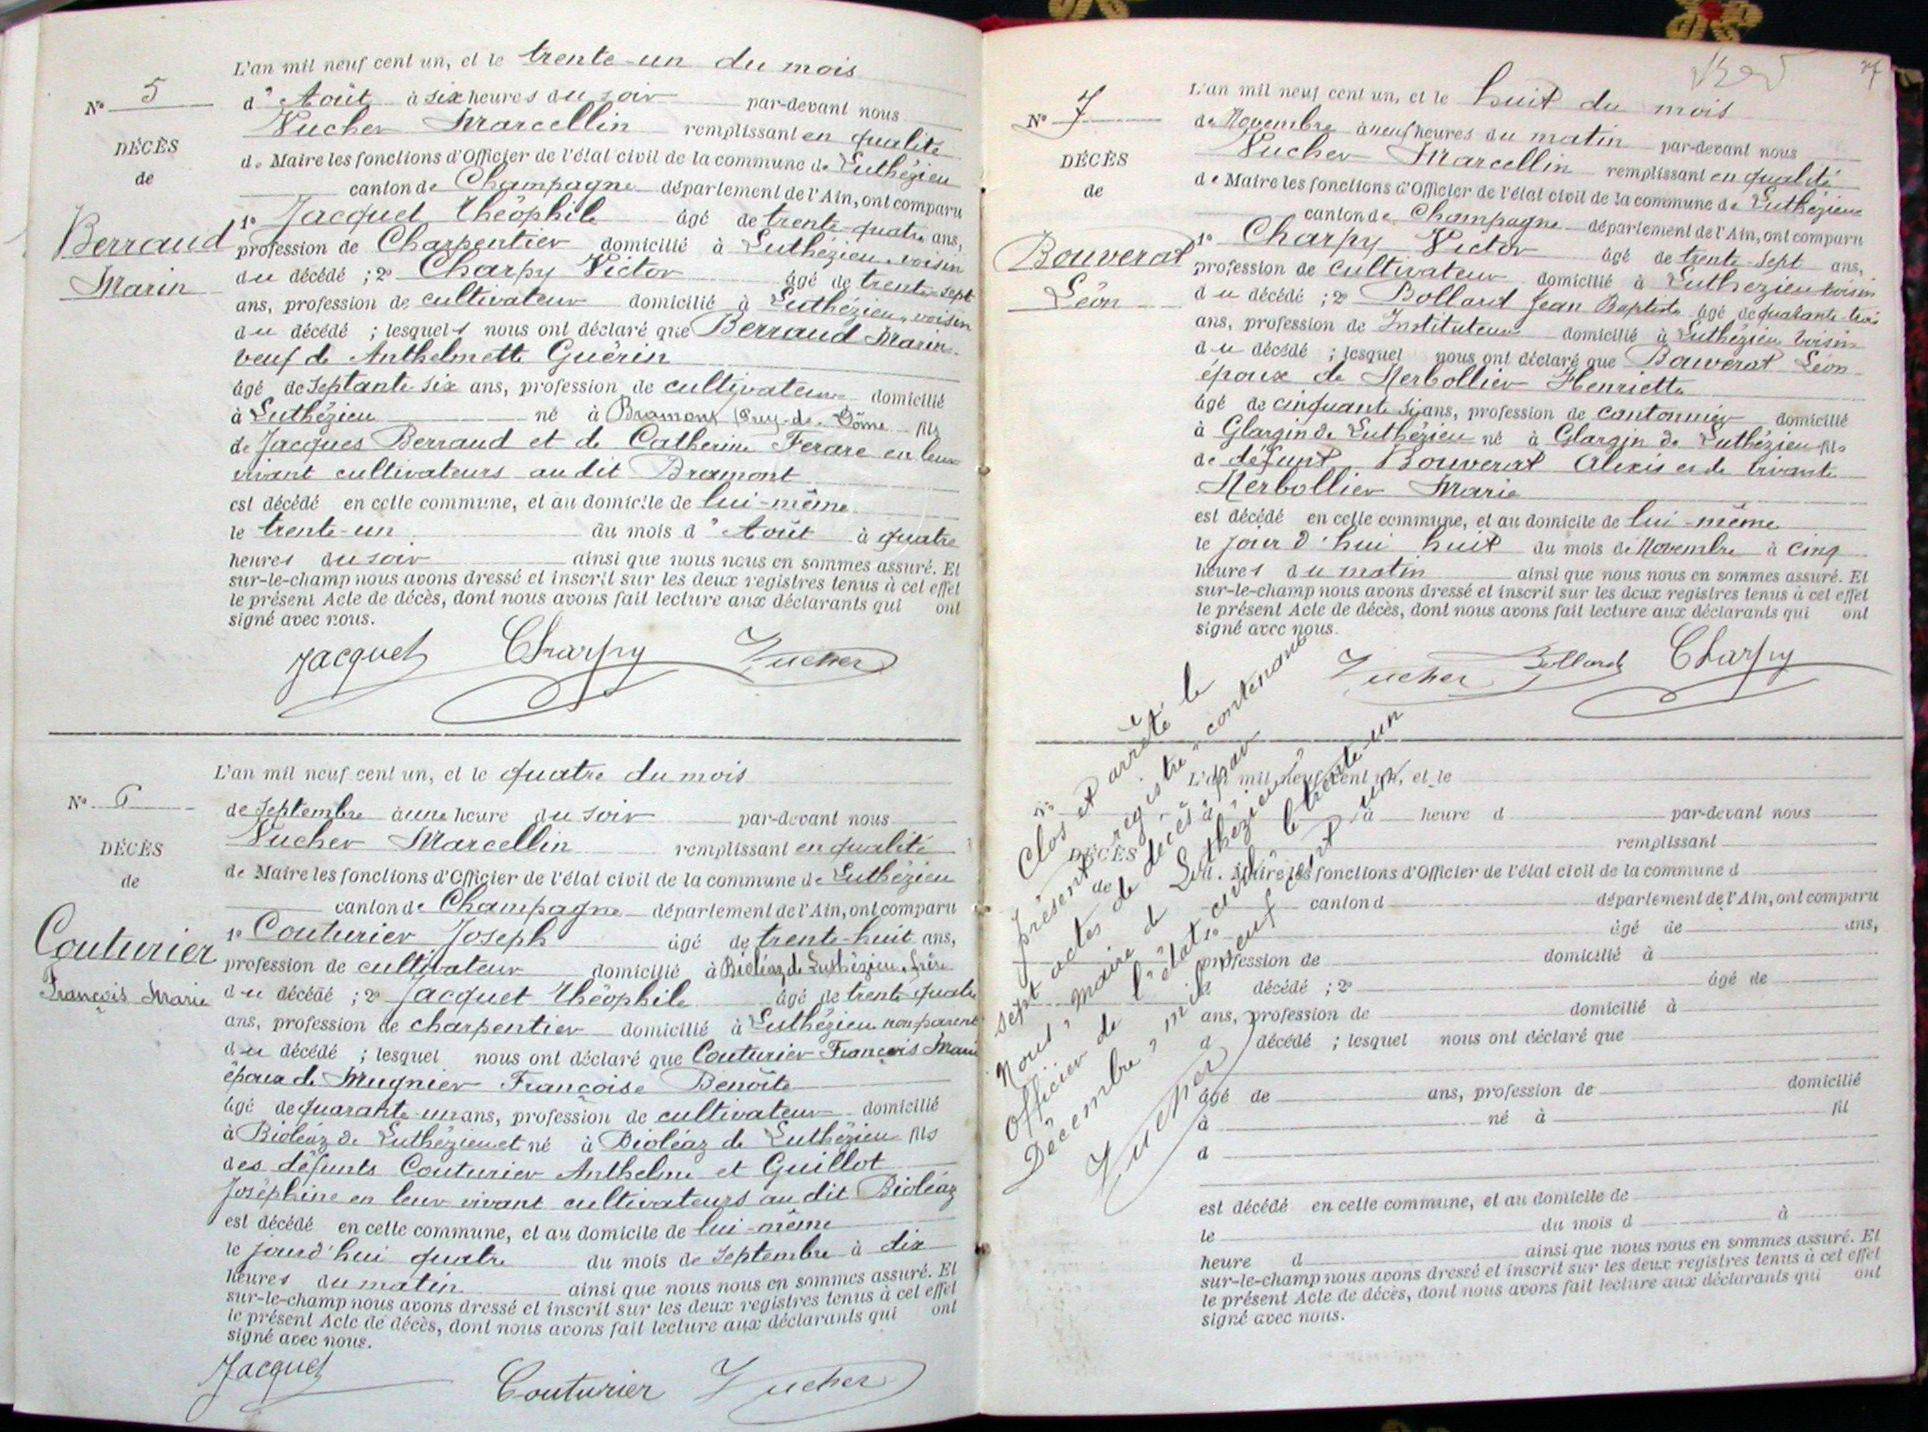 N° 5
DÉCÈS
de
Berraud
Marin
L'an mil neuf cent un, et le trente-un du mois
d'Août à six heures du soir par-devant nous
Vucher Marcellin remplissant en qualité
de Maire les fonctions d'Officier de l'état civil de la commune de Luthézieu
canton de Champagne département de l'Ain, ont comparu
1° Jacquet Théophile âgé de trente-quatre ans,
profession de Charpentier domicilié à Luthézieu, voisin
du décédé ; 2° Charpy Victor âgé de trente-sept
ans, profession de cultivateur domicilié à Luthézieu, voisin
du décédé ; lesquels nous ont déclaré que Berraud Marin
veuf de Anthelmette Guérin
âgé de septante six ans, profession de cultivateur domicilié
à Luthézieu né à Bramont Puy-de-Dôme fils
de Jacques Berraud et de Catherine Ferare en leur
vivant cultivateurs au dit Bramont
est décédé en cette commune, et au domicile de lui-même
le trente-un du mois d'Août à quatre
heures du soir ainsi que nous nous en sommes assuré. Et
sur-le-champ nous avons dressé et inscrit sur les deux registres tenus à cet effet
le présent Acte de décès, dont nous avons fait lecture aux déclarants qui ont
signé avec nous.
Jacquet Charpy Vucher
N° 6
DÉCÈS
de
Couturier
François Marie
L'an mil neuf cent un, et le quatre du mois
de Septembre à une heure du soir par-devant nous
Vucher Marcellin remplissant en qualité
de Maire les fonctions d'Officier de l'état civil de la commune de Luthézieu
canton de Champagne département de l'Ain, ont comparu
1° Couturier Joseph âgé de trente-huit ans,
profession de cultivateur domicilié à Bioléaz de Luthézieu, frère
du décédé ; 2° Jacquet Théophile âgé de trente-quatre
ans, profession de charpentier domicilié à Luthézieu non parent
du décédé ; lesquel nous ont déclaré que Couturier François Marie
époux de Mugnier Françoise Benoîte
âgé de quarante-un ans, profession de cultivateur domicilié
à Bioléaz de Luthézieu et né à Bioléaz de Luthézieu fils
des défunts Couturier Anthelme et Guillot
Joséphine en leur vivant cultivateurs au dit Bioléaz
est décédé en cette commune, et au domicile de lui-même
le jourd'hui quatre du mois de Septembre à dix
heures du matin ainsi que nous nous en sommes assuré. Et
sur-le-champ nous avons dressé et inscrit sur les deux registres tenus à cet effet
le présent Acte de décès, dont nous avons fait lecture aux déclarants qui ont
signé avec nous.
Jacquet Couturier Vucher
N° 7
DÉCÈS
de
Bouverat
Léon
L'an mil neuf cent un, et le huit du mois
de Novembre à neuf heures du matin par-devant nous
Vucher Marcellin remplissant en qualité
de Maire les fonctions d'Officier de l'état civil de la commune de Luthézieu
canton de Champagne département de l'Ain, ont comparu
1° Charpy Victor âgé de trente-sept ans,
profession de cultivateur domicilié à Luthézieu voisin
du décédé ; 2° Bollard Jean Baptiste âgé de quarante-trois
ans, profession de Instituteur domicilié à Luthézieu voisin
du décédé ; lesquel nous ont déclaré que Bouverat Léon
époux de Herbollier Henriette
âgé de cinquante six ans, profession de cantonnier domicilié
à Glargin de Luthézieu né à Glargin de Luthézieu fils
de défunt Bouverat Alexis et de vivante
Herbollier Marie
est décédé en cette commune, et au domicile de lui-même
le jour d'hui huit du mois de Novembre à cinq
heures du matin ainsi que nous nous en sommes assuré. Et
sur-le-champ nous avons dressé et inscrit sur les deux registres tenus à cet effet
le présent Acte de décès, dont nous avons fait lecture aux déclarants qui ont
signé avec nous.
Vucher Bollard Charpy
Clos et arrêté le
présent registre contenant
sept actes de décès, par
Nous, Maire de Luthézieu,
Officier de l'état civil le trente-un
Décembre, mil neuf cent un
Vucher
N°
DÉCÈS
de
L'an mil neuf cent un, et le
à heure d par-devant nous
remplissant
d. Maire les fonctions d'Officier de l'état civil de la commune d
canton d département de l'Ain, ont comparu
âgé de ans,
profession de domicilié à
d décédé ; 2° âgé de
ans, profession de domicilié à
d décédé ; lesquel nous ont déclaré que
âgé de ans, profession de domicilié
à né à fil
d
est décédé en cette commune, et au domicile de
le du mois d à
heure d ainsi que nous nous en sommes assuré. Et
sur-le-champ nous avons dressé et inscrit sur les deux registres tenus à cet effet
le présent Acte de décès, dont nous avons fait lecture aux déclarants qui ont
signé avec nous.